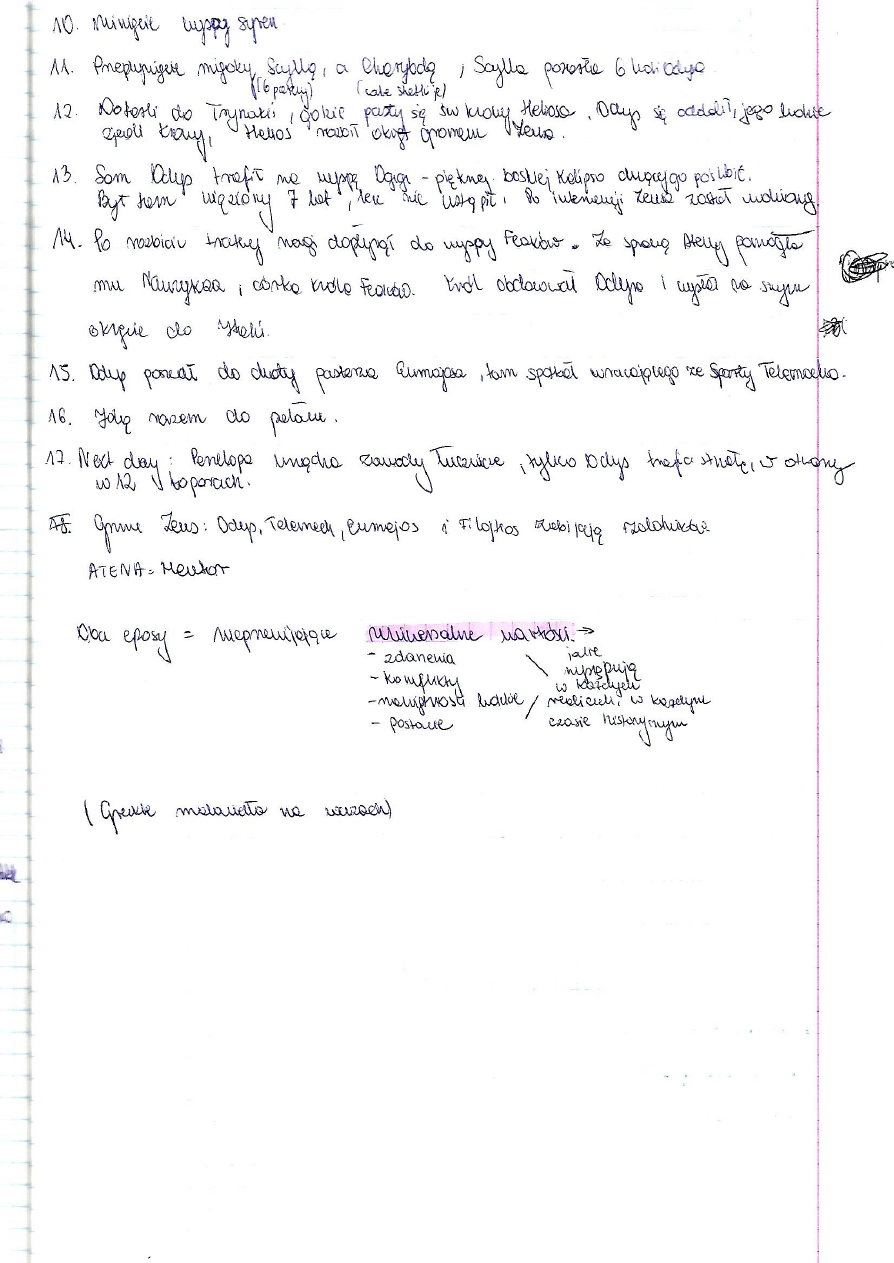 10. Minięcie wyspy syren
11. Przepłynięcie między Scyllą, a Charybdą, Scylla pożarła 6 ludzi Odysa
(6 paszczy) (całe statki je)
12. Dotarli do Trynakii, gdzie pasły się św krowy Heliosa. Odys się oddalił, jego ludzie
zjedli krowy, Helios rozbił okręt gromem Zeusa.
13. Sam Odys trafił na wyspę Ogigi - pięknej boskiej Kalipso chcącej go poślubić.
Był tam więziony 7 lat, lecz nie ustąpił. Po interwencji Zeusa został uwolniony.
14. Po rozbiciu tratwy nagi dopłynął do wyspy Feaków. Za sprawą Ateny pomogła
mu Nauzykaa, córka króla Feaków. Król obdarował Odysa i wysłał na swym
okręcie do Itaki.
15. Odys poszedł do chaty pasterza Eumajosa, tam spotkał wracającego ze Sparty Telemacha.
16. Idą razem do pałacu.
17. Next day: Penelopa urządza zawody łucznicze, tylko Odys trafia strzałą, w otwory
w 12 toporach.
18. Zeus: Odys, Telemach, Eumajos i Filojtios zabijają zalotników
ATENA = Mentor
Oba eposy = nieprzemijające uniwersalne wartości →
- zdarzenia
jakie
- konflikty
występują
w każdych
- namiętności ludzkie
realiach i w każdym
- postacie
czasie historycznym
(Greckie malowidła na wazach)